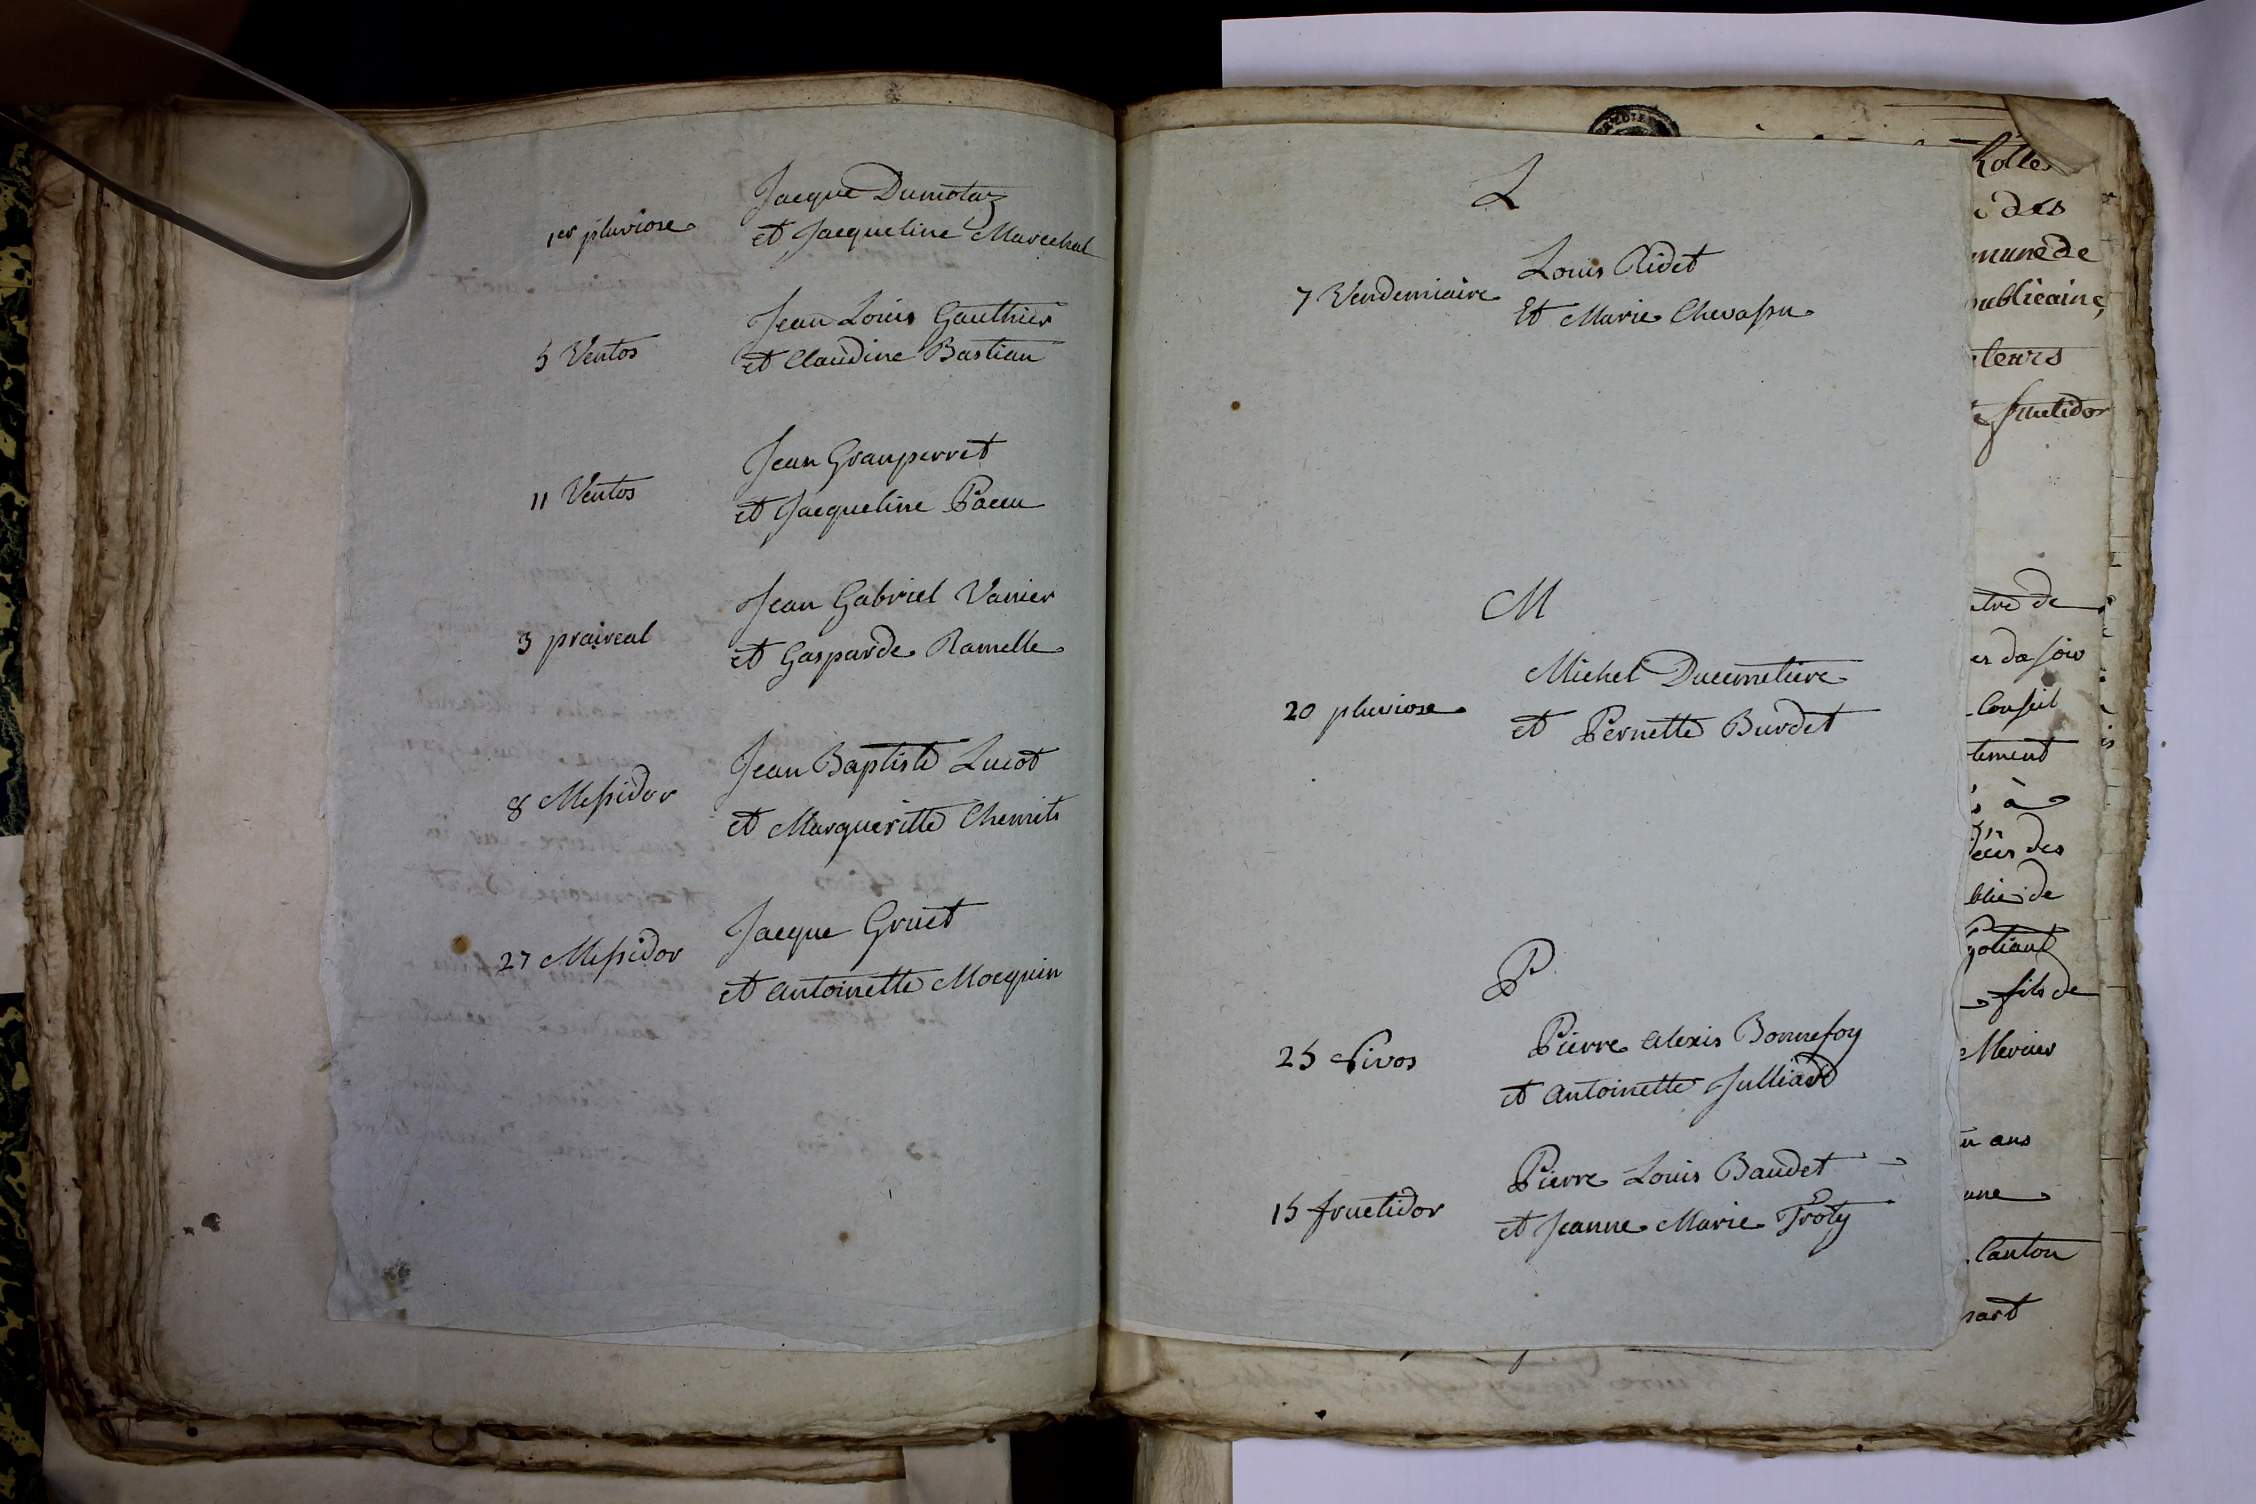 1er pluviose
Jacque Dumolaz
et Jacqueline Marechal
5 Ventos
Jean Louis Gauthier
et Claudine Bastian
11 Ventos
Jean Granperret
et Jacqueline Pacu
3 praireal
Jean Gabriel Vanier
et Gasparde Ramelle
8 Messidor
Jean Baptiste Lucot
et Margueritte
27 Messidor
Jacque Gruet
et antoinette Mocquin
L
7 Vendemiaire
Louis Ridet
Et Marie Chevassu
M
20 pluviose
Michel Ducimetiere
et Pernette Burdet
P
25 Nivos
Pierre alexis Bonnefoy
et antoinette Julliard
15 fructidor
Pierre Louis Baudet
et Jeanne Marie
des
mune de
publicaine,
teurs
fructidor
tre de
Conseil
tement
à
des
de
fils de
Mercier
ans
une
Canton
part